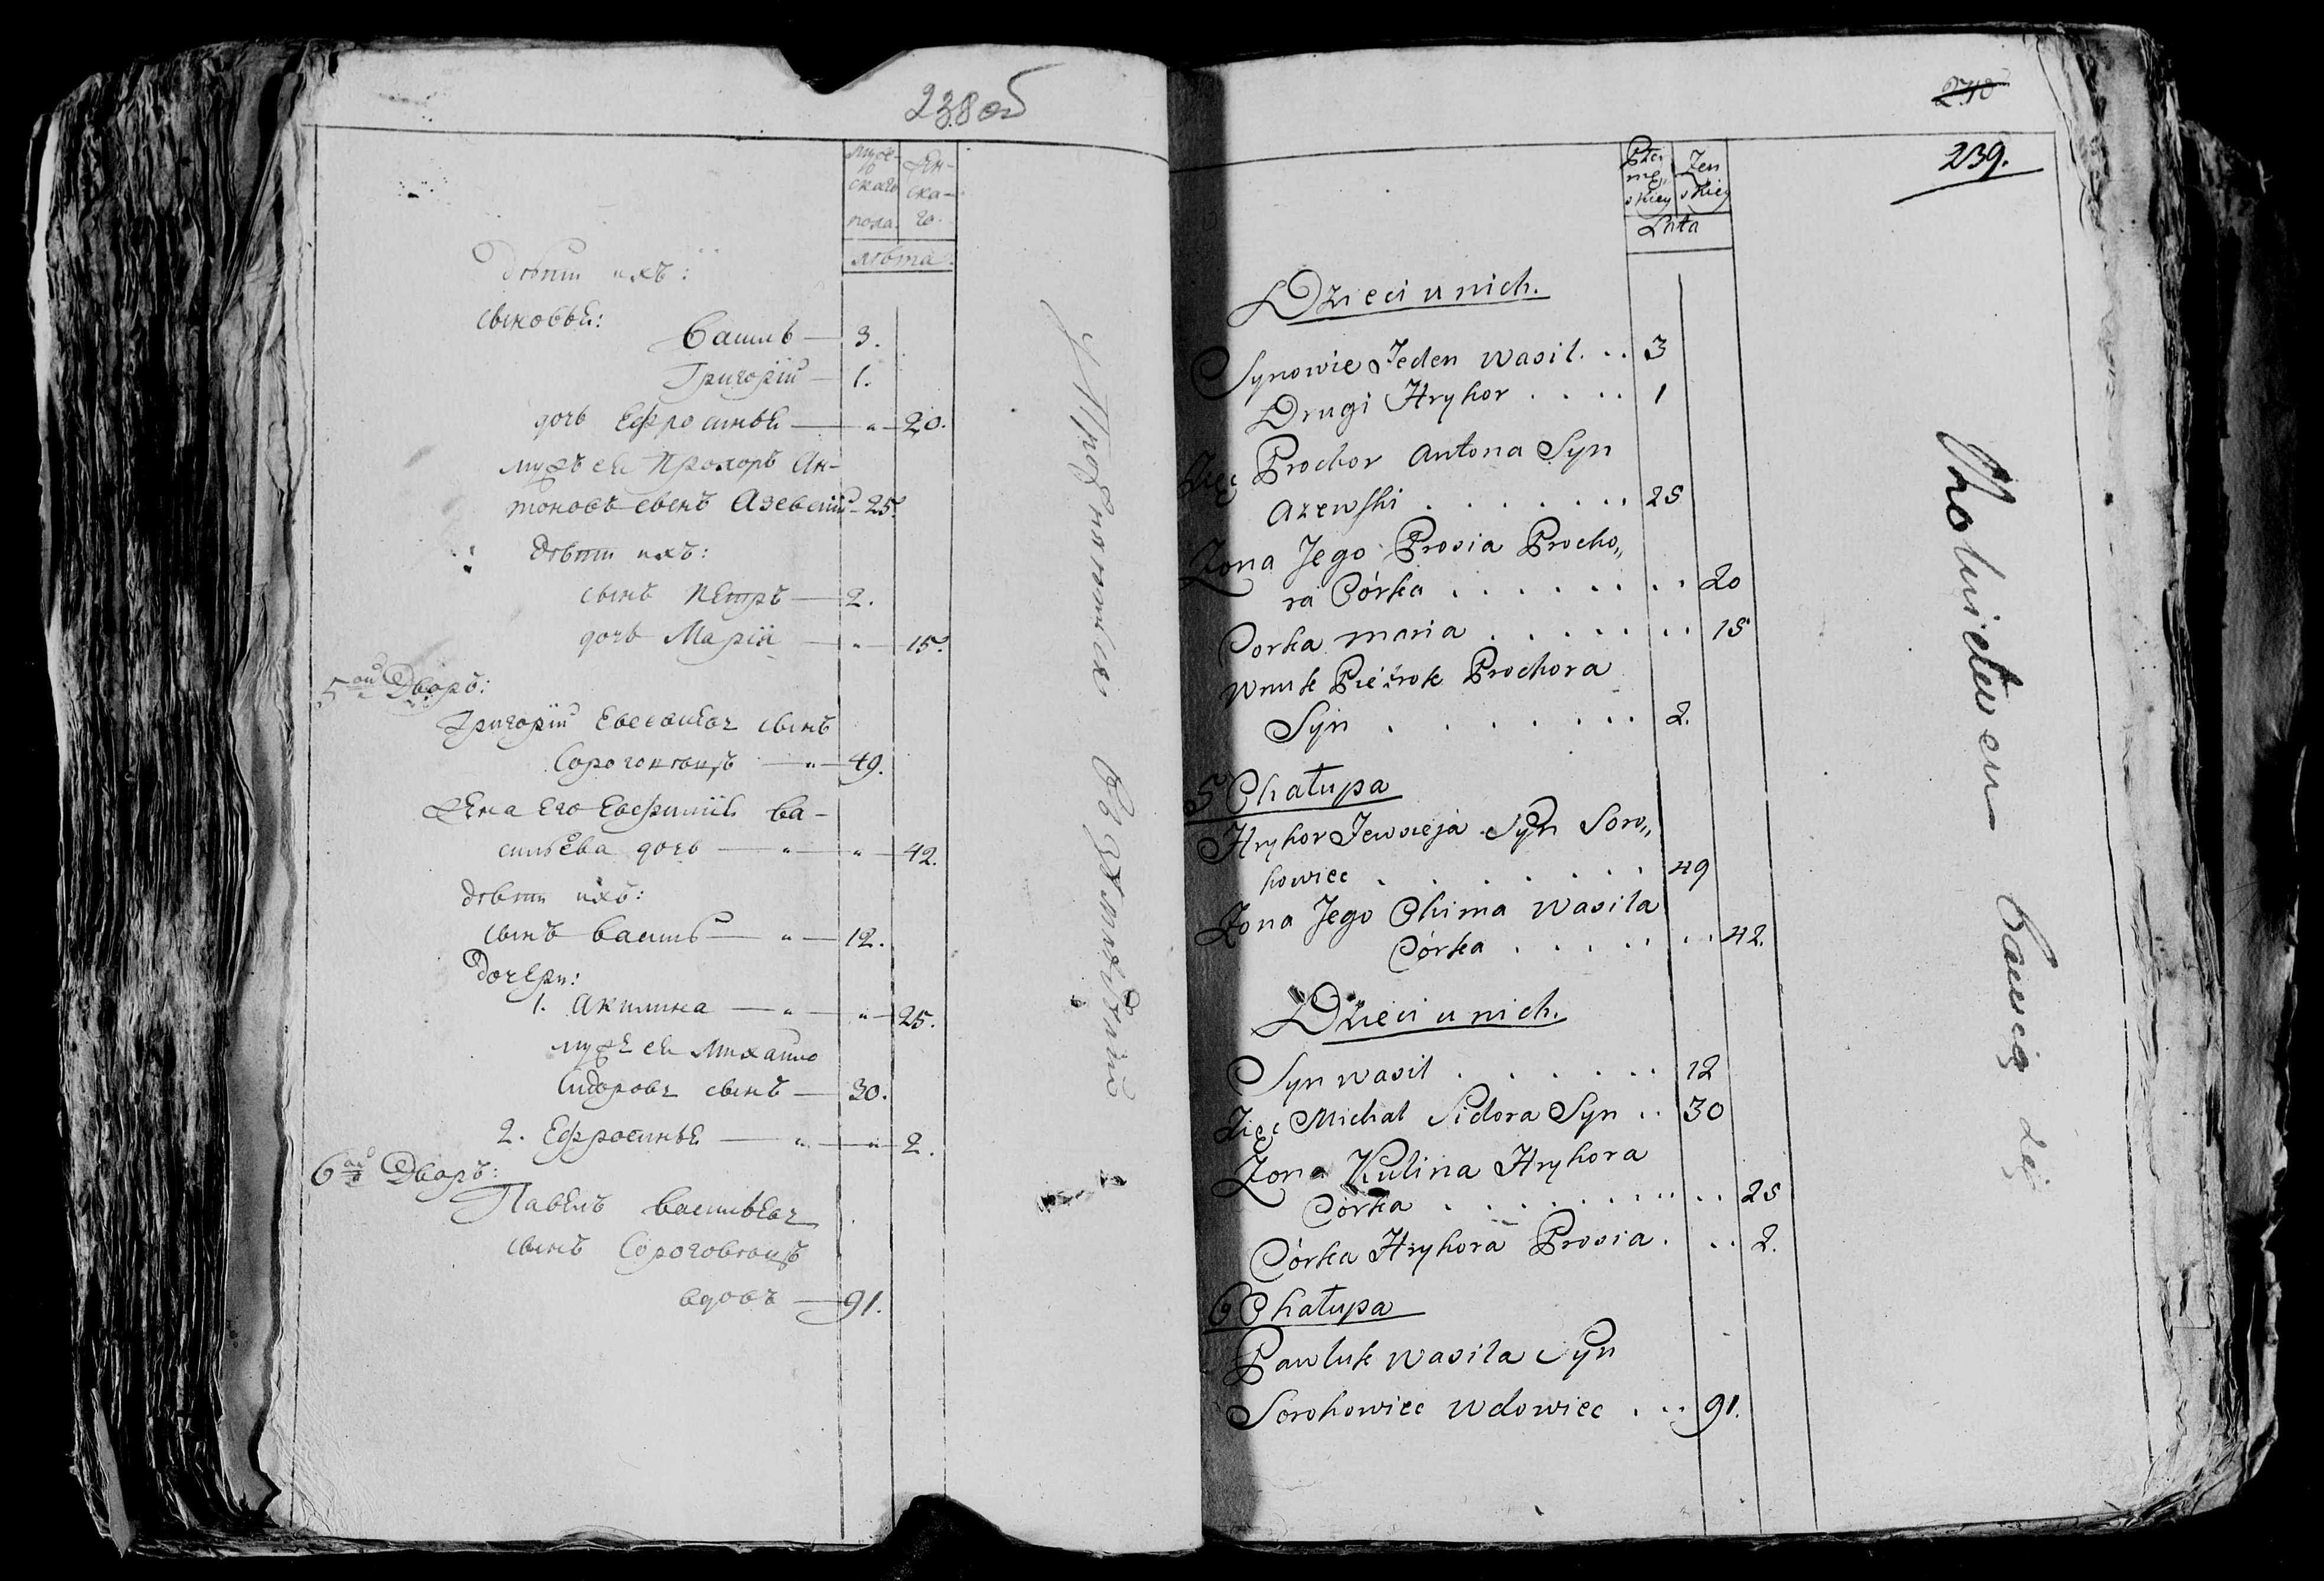 238 об
мужескаго пола
женскаго
лѣта
дѣти ихъ:
сыновья:
Василь — 3.
Григорій — 1.
дочь Ефросинья — " — 20.
мужъ ея Прохоръ Ан-
тоновъ сынъ Азевскій — 25.
дѣти ихъ:
сынъ Петръ — 2.
дочь Марія — " — 15.
5ой Дворъ:
Григорій Евсеиевъ сынъ
Сороговецъ — " — 49.
жена его Евфимія Ва-
сильева дочь — " — " — 42.
дѣти ихъ:
сынъ Василь — " — 12.
Дочери:
1. Акилина — " — " — 25.
мужъ ея Михайло
Сидоровъ сынъ — 30.
2. Ефросинья — " — " — 2.
6ой Дворъ:
Павелъ Васильевъ
сынъ Сороговецъ
вдовъ — 91.
240
239.
Płci męskiey
Żenskiey
Lata
Dzieci u nich.
Synowie Jeden Wasil . . . 3
Drugi Hryhor . . . . 1
Zięć Prochor Antona Syn
Azewski . . . . . . . . 25
Zona Jego Prosia Procho„
ra Córka . . . . . . . . 20
Corka Maria . . . . . . . 15
Wnuk Piętrok Prochora
Syn . . . . . . . . 2.
5 Chałupa
Hryhor Jewsieja Syn Soro„
howiec . . . . . . . . 49
Zona Jego Chima Wasila
Córka . . . . . . . 42.
Dzieci u nich.
Syn Wasil . . . . . . . 12
Zięć Michał Sidora Syn . . 30
Zona Kulina Hryhora
Córka . . . . . . . . . . 25
Córka Hryhora Prosia . . . 2.
6 Chałupa
Pawluk Wasila Syn
Sorohowiec Wdowiec . . . 91.